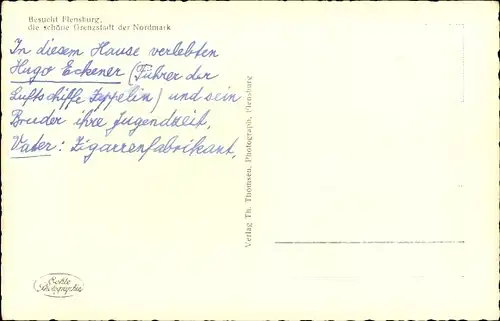 Besucht Flensburg,
die schöne Grenzstadt der Nordmark
In diesem Hause verlebten
Hugo Eckener (Führer der
Luftschiffe Zeppelin) und sein
Bruder ihre Jugendzeit,
Vater: Zigarrenfabrikant,
Verlag Th. Thomsen, Photograph, Flensburg
Echte
Photographie